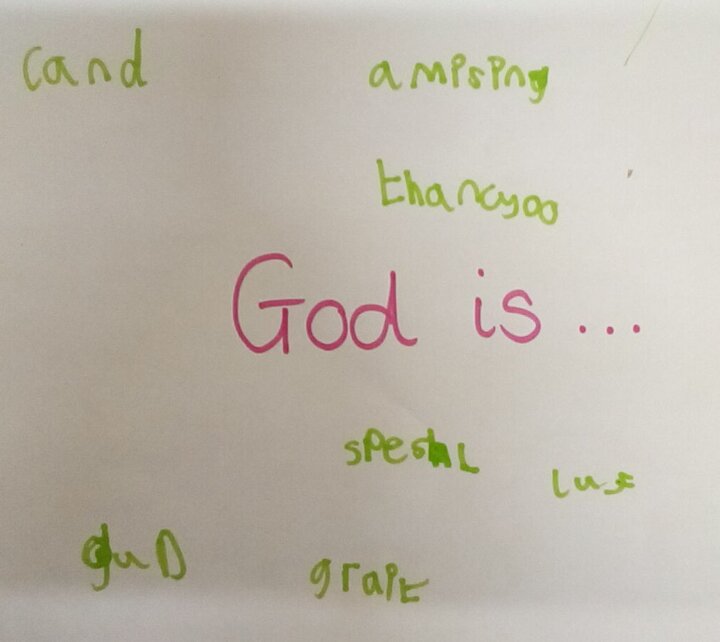 cand
amising
thancyoo
God is ...
speshL
lus
guD
grait